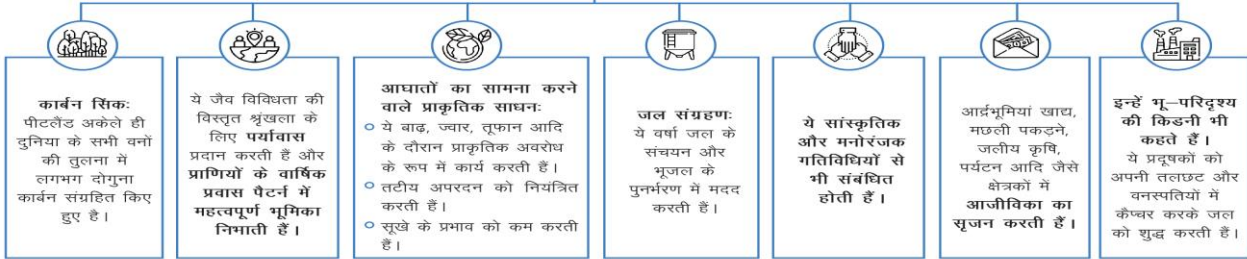 कार्बन सिंकः
पीटलैंड अकेले ही
दुनिया के सभी वनों
की तुलना में
लगभग दोगुना
कार्बन संग्रहित किए
हुए है।
ये जैव विविधता की
विस्तृत श्रृंखला के
लिए पर्यावास
प्रदान करती हैं और
प्राणियों के वार्षिक
प्रवास पैटर्न में
महत्वपूर्ण भूमिका
निभाती हैं।
आघातों का सामना करने
वाले प्राकृतिक साधनः
ये बाढ़, ज्वार, तूफान आदि
के दौरान प्राकृतिक अवरोध
के रूप में कार्य करती हैं।
तटीय अपरदन को नियंत्रित
करती हैं।
सूखे के प्रभाव को कम करती
हैं।
जल संग्रहणः
ये वर्षा जल के
संचयन और
भूजल के
पुनर्भरण में मदद
करती हैं।
ये सांस्कृतिक
और मनोरंजक
गतिविधियों से
भी संबंधित
होती हैं।
आर्द्रभूमियां खाद्य,
मछली पकड़ने,
जलीय कृषि,
पर्यटन आदि जैसे
क्षेत्रकों में
आजीविका का
सृजन करती हैं।
इन्हें भू–परिदृश्य
की किडनी भी
कहते हैं।
ये प्रदूषकों को
अपनी तलछट और
वनस्पतियों में
कैप्चर करके जल
को शुद्ध करती हैं।